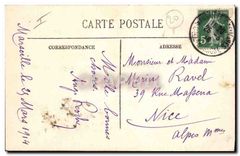 CARTE POSTALE
CORRESPONDANCE
ADRESSE
Marseille le 31 Mars 1914
Mille bonnes
choses
Monsieur et Madame
Ravel
39 Rue Masséna
Nice
Alpes Mmes